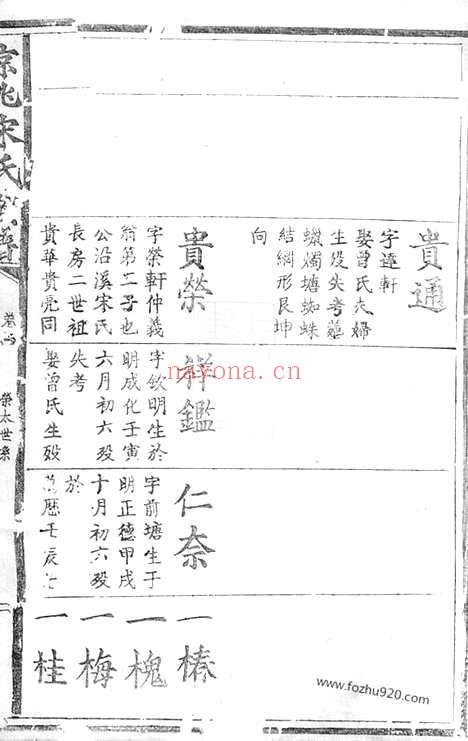 貴通
字達軒
娶曾氏夫婦
生歿失考葬
蠟燭塘蜘蛛
結網形艮坤
向
貴榮
字榮軒仲義
翁第二子也
公沿溪宋氏
長房二世祖
貴華貴亮同
祥鑑
字欽明生於
明成化壬寅
六月初六歿
失考
娶曾氏生歿
仁奈
字前塘生于
明正德甲戌
十月初六歿
於
萬歷壬辰七
一椿
一槐
一梅
一桂
京兆宋氏
榮太世系
nayona.cn
www.fozhu920.com